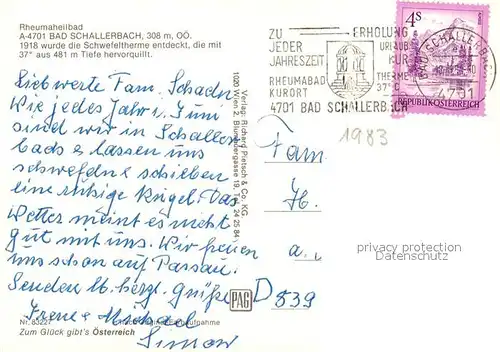 Rheumaheilbad
A-4701 BAD SCHALLERBACH, 308 m, OÖ.
1918 wurde die Schwefeltherme entdeckt, die mit
37° aus 481 m Tiefe hervorquillt.
Liebwerte Fam. Schadn
Wie jedes Jahr i. Juni
sind wir in Schaller
bach & lassen uns
schwefeln & schieben
eine ruhige Kugel. Das
Wetter meint es nicht
gut mit uns. Wir freuen
uns schon auf Passau.
Senden Ib. herzl. Grüße
Irene & Michael
Simon
Nr. 83227
Zum Glück gibt's Österreich
Verlag: Richard Pietsch & Co. KG
1020 Wien 2, Blumauergasse 19, Tel. 24 25 84
PAG
ZU ERHOLUNG
JEDER URLAUB
JAHRESZEIT KUR
RHEUMABAD THERME
KURORT 37° C
4701 BAD SCHALLERBACH
4 S
REPUBLIK ÖSTERREICH
BAD SCHALLERBACH
4701
1983
Fam
H.
a.
D 839
privacy protection
Datenschutz